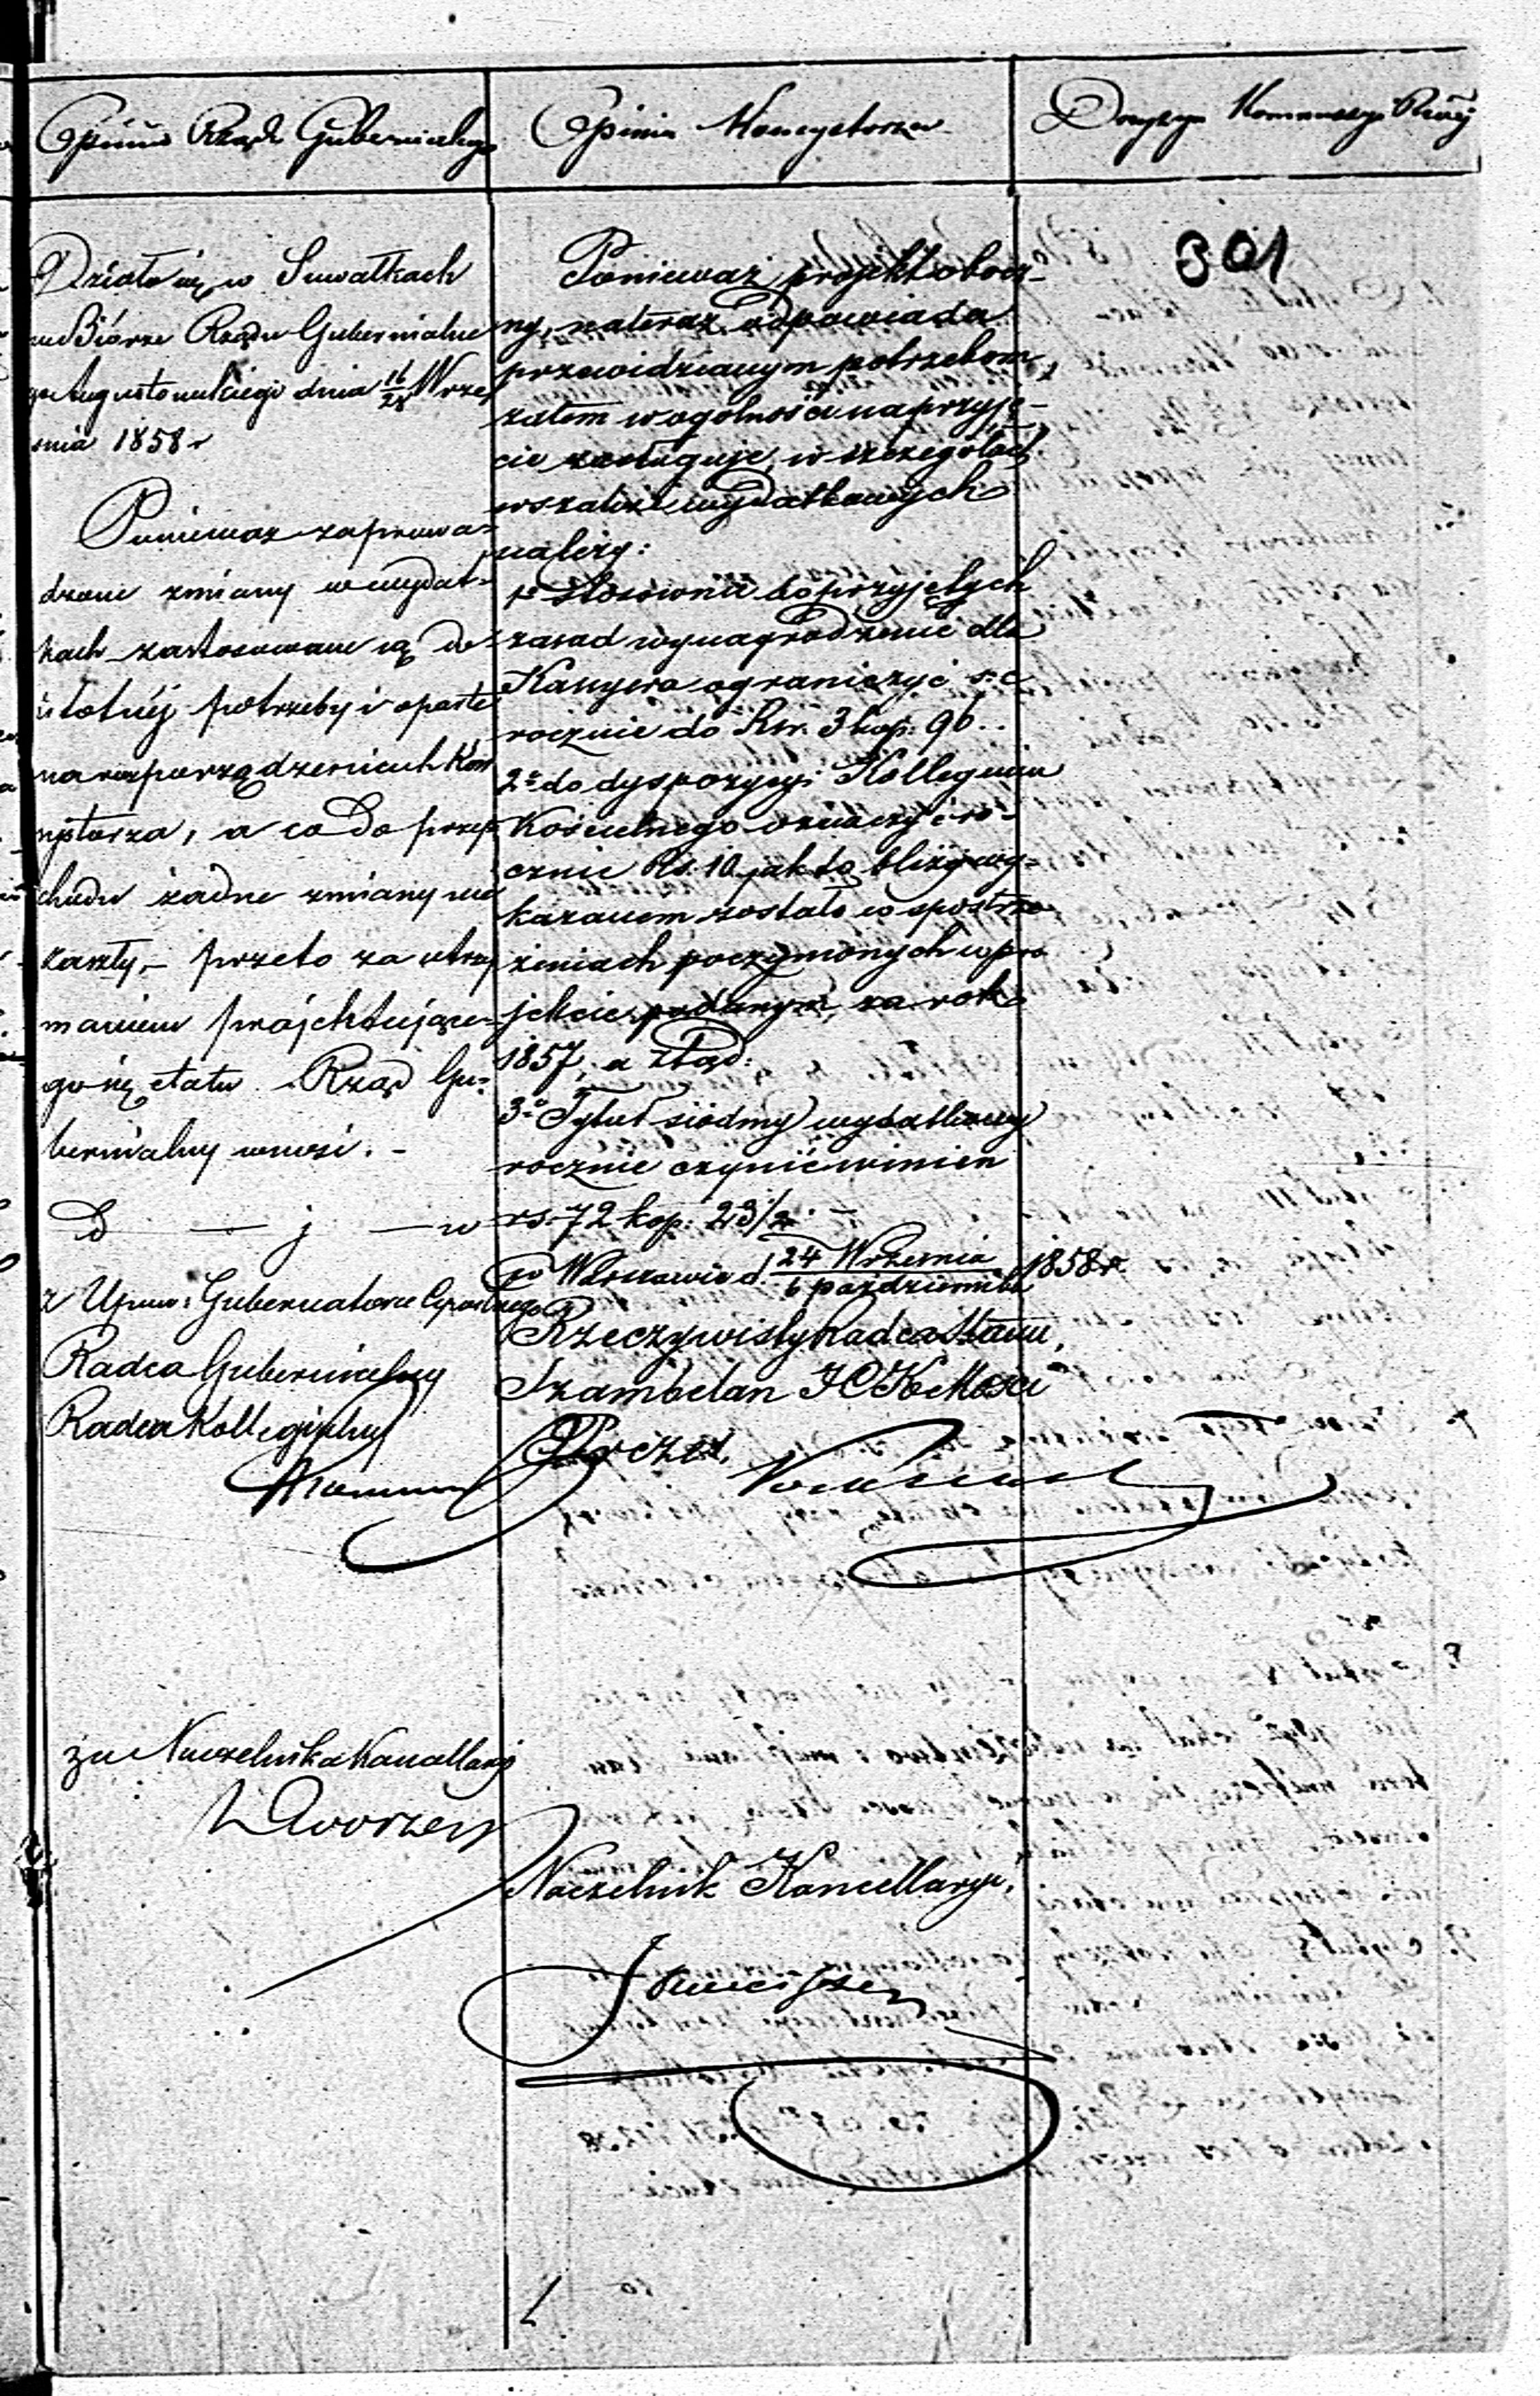 Opinia Rządu Gubernialnego
Działo się w Suwałkach
na Biórze Rządu Gubernialne
go Augustowskiego dnia 16/28 Wrze
śnia 1858 r
Ponieważ zaprowa=
dzone zmiany w wydat=
kach zastosowane są do
istotnéj potrzeby i oparte
na rozporządzeniach Kon
systorza, a co do przy
chodu żadne zmiany nie
zaszły, – przeto za utrzy
maniem projektujące=
go się etatu Rząd Gu=
bernialny wnosi. –
z Upow: Gubernatora Cywilnego
Radca Gubernialny
Radca Kollegialny
za Naczelnika Kancellaryi
Opinia Konsystorza
Ponieważ projekt obecz-
ny, nateraz odpowiada
przewidzianym potrzebom,
zatem w ogólności na przyję-
cie zasługuje, w szczegółach
wszakże wydatkowych
należy:
1o Stosownie do przyjętych
zasad wynagrodzenie dla
Kantora ograniczyć
rocznie do Rsr. 3 kop: 96..
2o do dyspozycyi Kollegium
Kościelnego oznaczyć ro-
cznie Rs. 10 jak to bliżej wy=
kazanem zostało w spostrze
żeniach poczynionych w pro
jekcie podanym, za rok
1857, a ztąd:
3o Tytuł siódmy wydatkowy
rocznie czynić winien
rs. 72 kop: 23 1/2. –
w Warszawie d. 24 Września / 6 października 1858 r.
Rzeczywisty Radca Stanu,
Szambelan JCK Mości
Prezes,
Naczelnik Kancellaryi,
Decyzya Kommissyi Rząd:
301